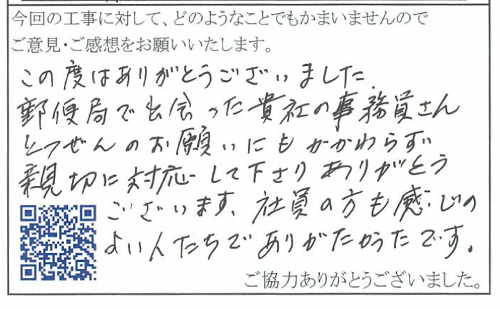 今回の工事に対して、どのようなことでもかまいませんので
ご意見・ご感想をお願いいたします。
この度はありがとうございました
郵便局で出会った貴社の事務員さん
とつぜんのお願いにもかかわらず
親切に対応して下さりありがとう
ございます、社員の方も感じの
よい人たちでありがたかったです。
ご協力ありがとうございました。